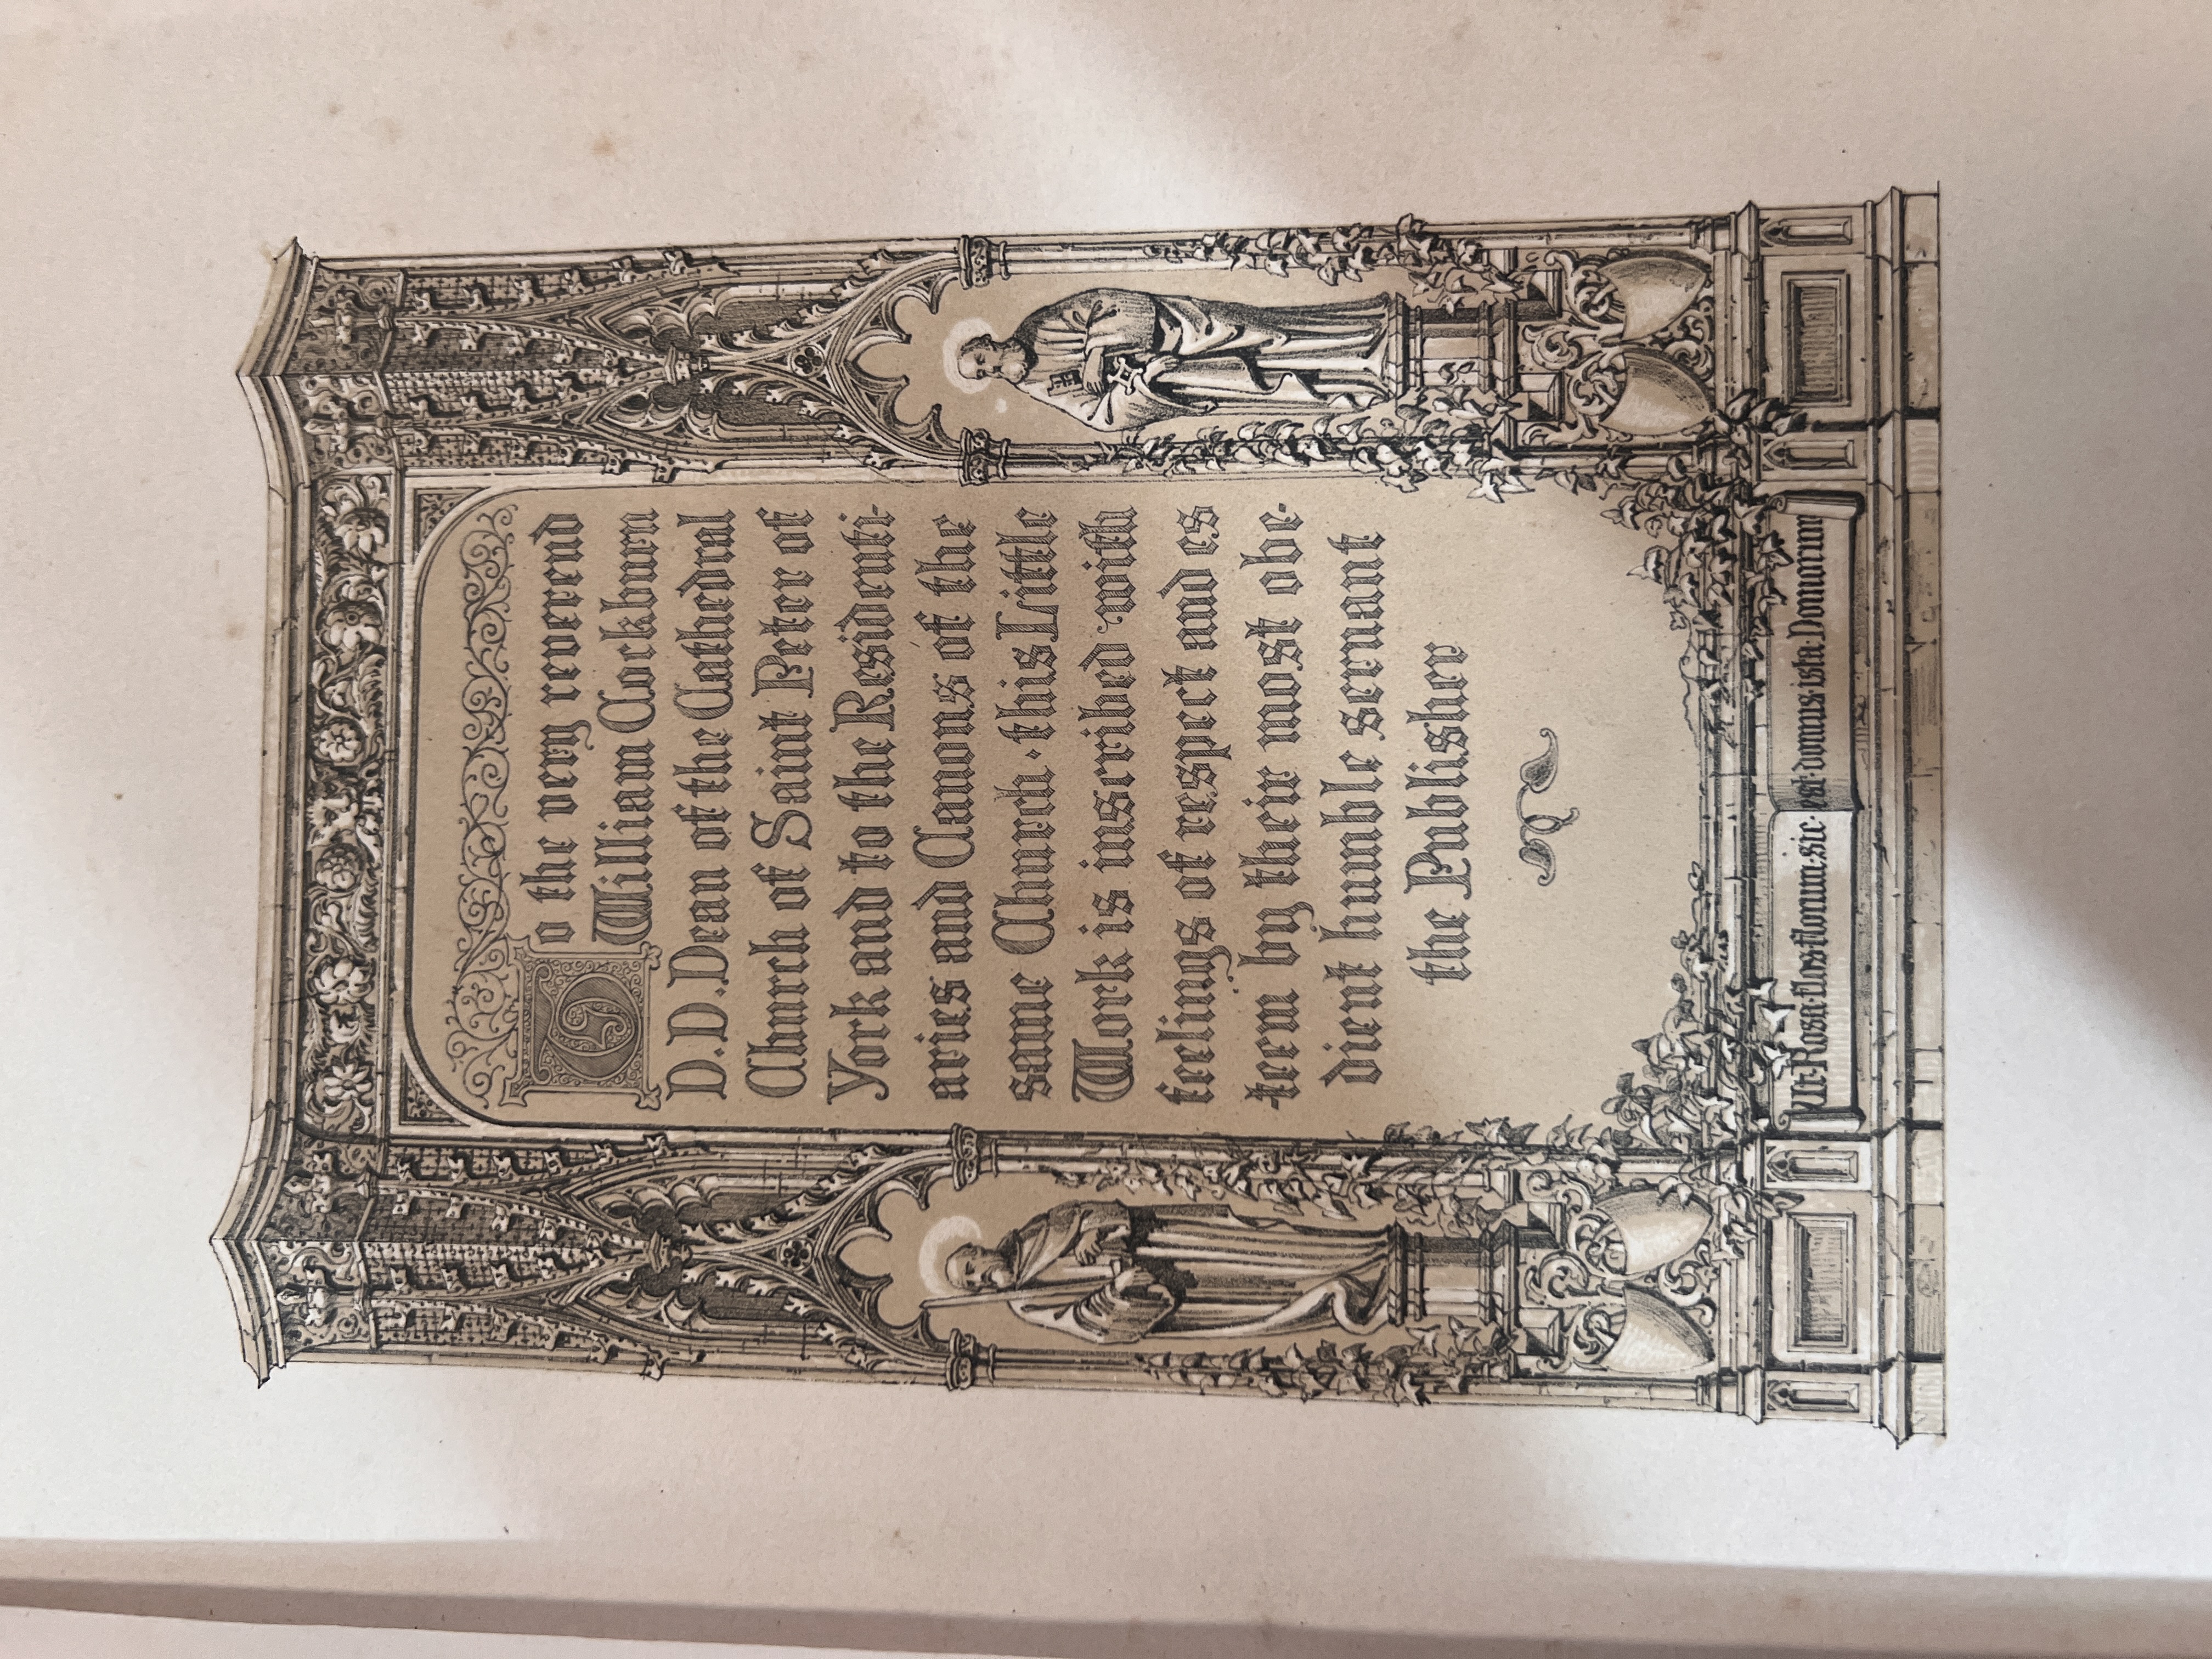 To the very reverend
William Cockburn
D.D. Dean of the Cathedral
Church of Saint Peter of
York and to the Residenti-
aries and Canons of the
same Church · this Little
Work is inscribed with
feelings of respect and es
teem by their most obe-
dient humble servant
the Publisher
Ut·Rosa·flos·florum·sic·est·domus·ista·Domorum